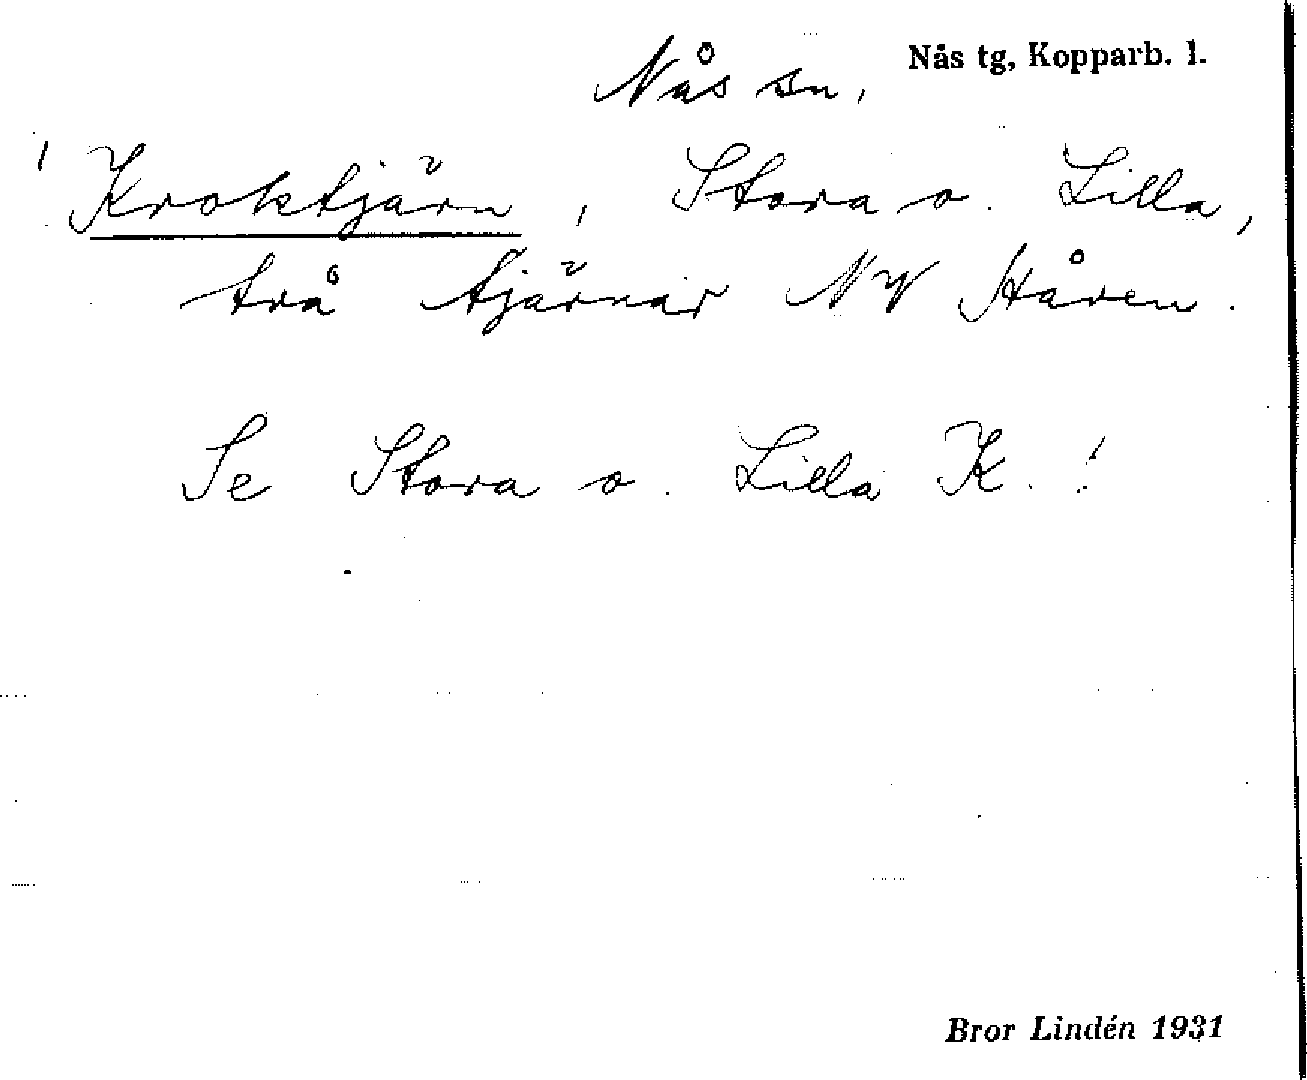 Nås tg, Kopparb. l.
Nås sn,
' Kroktjärn, Stora o. Lilla,
två tjärnar NV Håren.
Se Stora o. Lilla K.!
Bror Lindén 1931